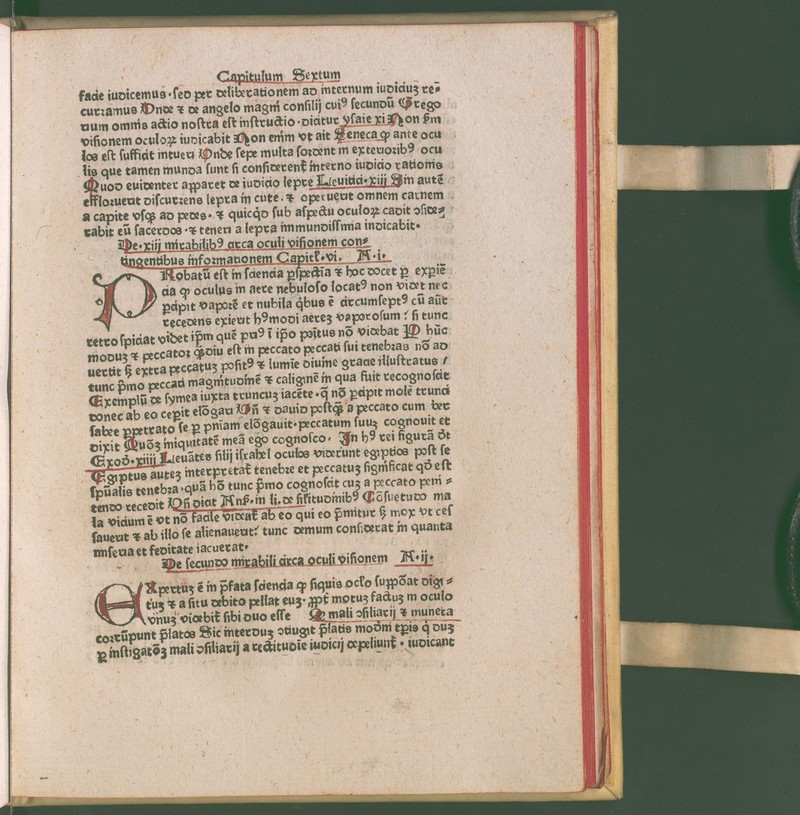 Capitulum Sextum
facie iudicemus · sed per deliberationem ad internum iudiciuz re⸗
curramus Unde ⁊ de angelo magni consilij cuiꝰ secundū Grego
rium omnis actio nostra est instructio · dicitur ysaie xi Non ẜm
visionem oculoꝝ iudicabit Non enim vt ait Seneca ꝙ ante ocu
los est sufficit intueri Unde sepe multa sordent in exterioribꝰ ocu
lis que tamen munda sunt si considerent̄ interno iudicio rationis
Quod euidenter apparet de iudicio lepre Leuitici · xiij Sin autē
effloruerit discurrens lepra in cute · ⁊ operuerit omnem carnem
a capite vsqꝫ ad pedes · ⁊ quicqͥd sub aspectu oculoꝝ cadit ↄside⸗
rabit eū sacerdos · ⁊ teneri a lepra immundissima iudicabit ·
De · xiij mirabilibꝰ circa oculi visionem con⸗
tingentibus informationem Capitł · vi · A · i ·
PRobatū est in sciencia ꝑspectia ⁊ hoc docet ꝑ expiē
cia ꝙ oculus in aere nebuloso locatꝰ non videt nec
ꝑcipit vaporē et nubila qͥbus ē circumseptꝰ cū aūt
recedens exierit hꝰmodi aerez vaporosum : si tunc
retro spiciat videt ip̄m quē priꝰ ī ip̄o poītus nō videbat Pͥ hūc
moduz ⁊ peccator qͣmdiu est in peccato peccati sui tenebras nō ad
uertit sꝫ extra peccatuz positꝰ ⁊ lumīe diuine gracie illustratus /
tunc pͥmo peccati magnitudinē ⁊ caliginē in qua fuit recognoscit
Exemplū de symea iuxta truncuz iacēte · qͥ nō ꝑcipit molē trunci
donec ab eo cepit elōgari Uñ ⁊ dauid postqͣꝫ a peccato cum ber
sabee ꝑpetrato se ꝑ pniam elōgauit · peccatum suuz cognouit et
dixit Quōꝫ iniquitatē meā ego cognosco · In hꝰ rei figurā dr̄
Exod̄ · xiiij Leuātes filij israhel oculos viderunt egiptios post se
Egiptus autez interpretat̄ tenebre et peccatuz significat qd̄ est
spūalis tenebra · quā hō tunc pͥmo cognoscit cuz a peccato peni⸗
tendo recedit Uñ dicit Anẜ · in li · de siłitudinibꝰ Cōsuetudo ma
la vicium ē vt nō facile videat̄ ab eo qui eo pͥmitur sꝫ mox vt ces
sauerit ⁊ ab illo se alienauerit : tunc demum considerat in quanta
miseria et feditate iacuerat ·
De secundo mirabili circa oculi visionem A · ij ·
EXpertuz ē in p̄fata sciencia ꝙ siquis oclo supponat digi⸗
tuz ⁊ a situ debito pellat euz · ꝓpt̄ motuz factuz in oculo
vnuz videbit sibi duo esse Qͥ mali ↄsiliarij ⁊ munera
corrūpunt p̄latos Sic interduz ↄtingit p̄latis modͥm tꝑis qͥ duz
ꝑ instigatōꝫ mali ↄsiliarij a rectitudīe iudicij depelunt̄ · iudicant